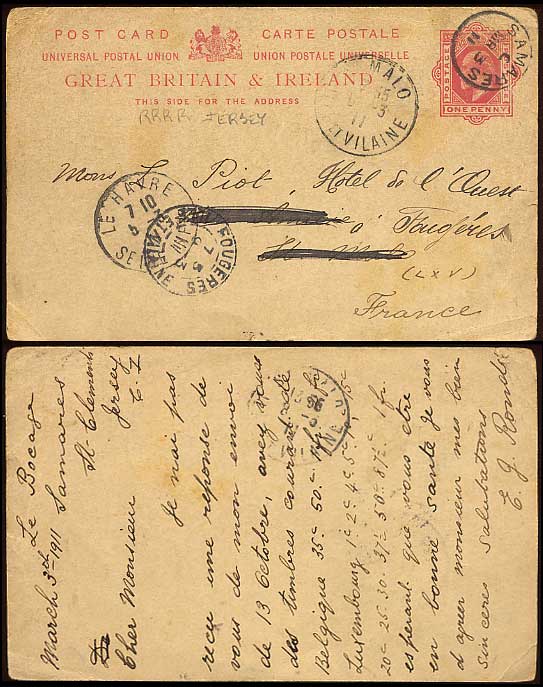 POST CARD CARTE POSTALE
UNIVERSAL POSTAL UNION UNION POSTALE UNIVERSELLE
GREAT BRITAIN & IRELAND
THIS SIDE FOR THE ADDRESS
RRRR JERSEY
POSTAGE
ONE PENNY
SAMARES
MR 3
11
MALO
ET VILAINE
LE HAVRE
7 10
FOUGERES
Mons L. Piot, Hôtel de l'Ouest
á Fougéres
France
Le Bocage
March 3rd 1911 Samares
St Clements
Jersey
C. I
Cher Monsieur
Je n'ai pas
recu une reponse de
vous de mon envoi
de 13 Octobre, avez vous
des timbres courant de
Belgique 35c 50c 1 fr
Luxembourg 1c 2c 4c 5c 15c
20c 25c 30c 37½c 50c 87½c 1 fr.
esperant que vous etre
en bonne santé je vous
d agreer monsieur mes bien
sinceres salutations